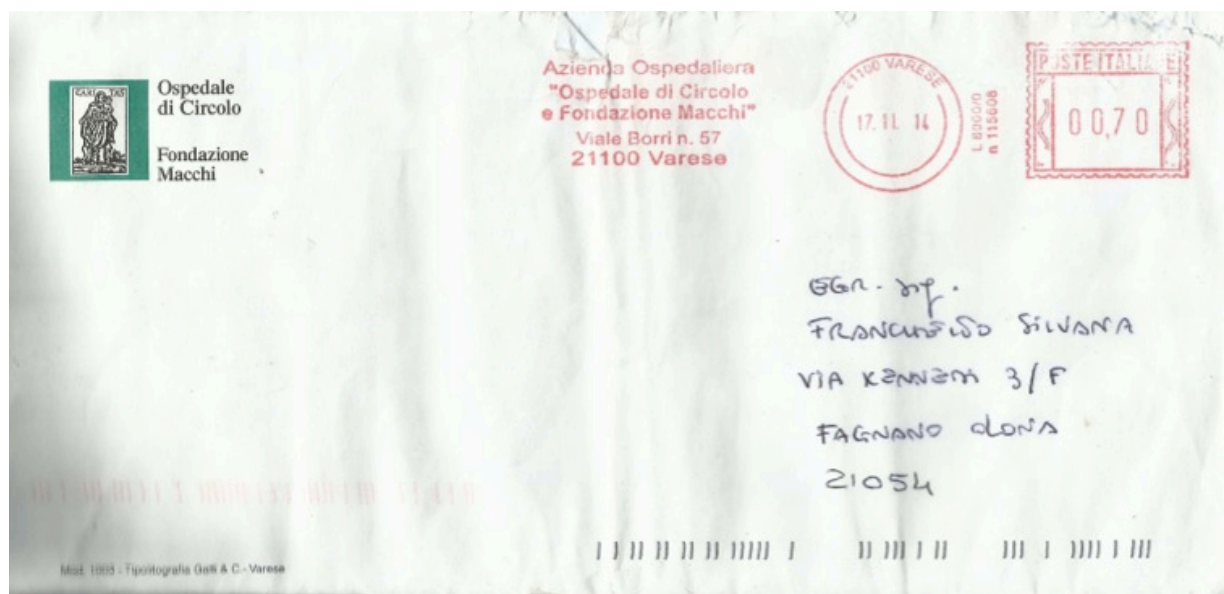 CARI TAS
Ospedale
di Circolo
Fondazione
Macchi
Azienda Ospedaliera
"Ospedale di Circolo
e Fondazione Macchi"
Viale Borri n. 57
21100 Varese
21100 VARESE
17.11. 14
L 8000/0
n 115608
POSTE ITALIANE
00,70
EGR. sig.
SILVANA
VIA KENNEDY 3/F
FAGNANO OLONA
21054
Mod. - Tipolitografia Galli & C. - Varese